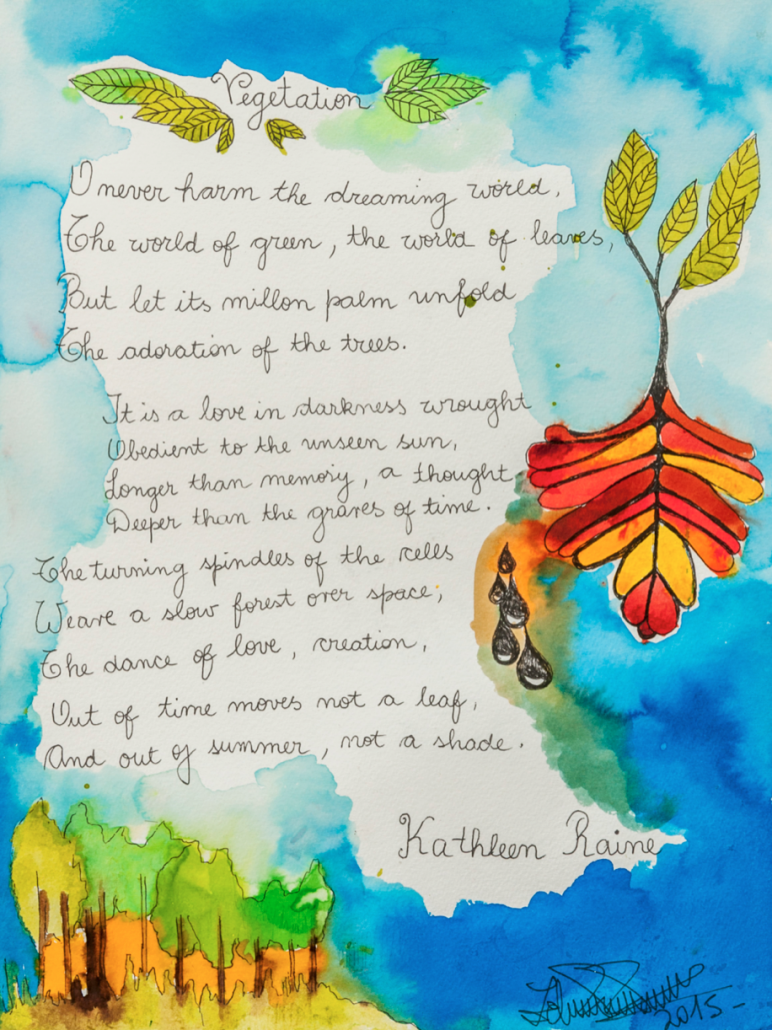 Vegetation
O never harm the dreaming world,
The world of green, the world of leaves,
But let its millon palm unfold
The adoration of the trees.
It is a love in darkness wrought
Obedient to the unseen sun,
Longer than memory, a thought
Deeper than the graves of time.
The turning spindles of the cells
Weave a slow forest over space,
The dance of love, creation,
Out of time moves not a leaf,
And out of summer, not a shade.
Kathleen Raine
2015-